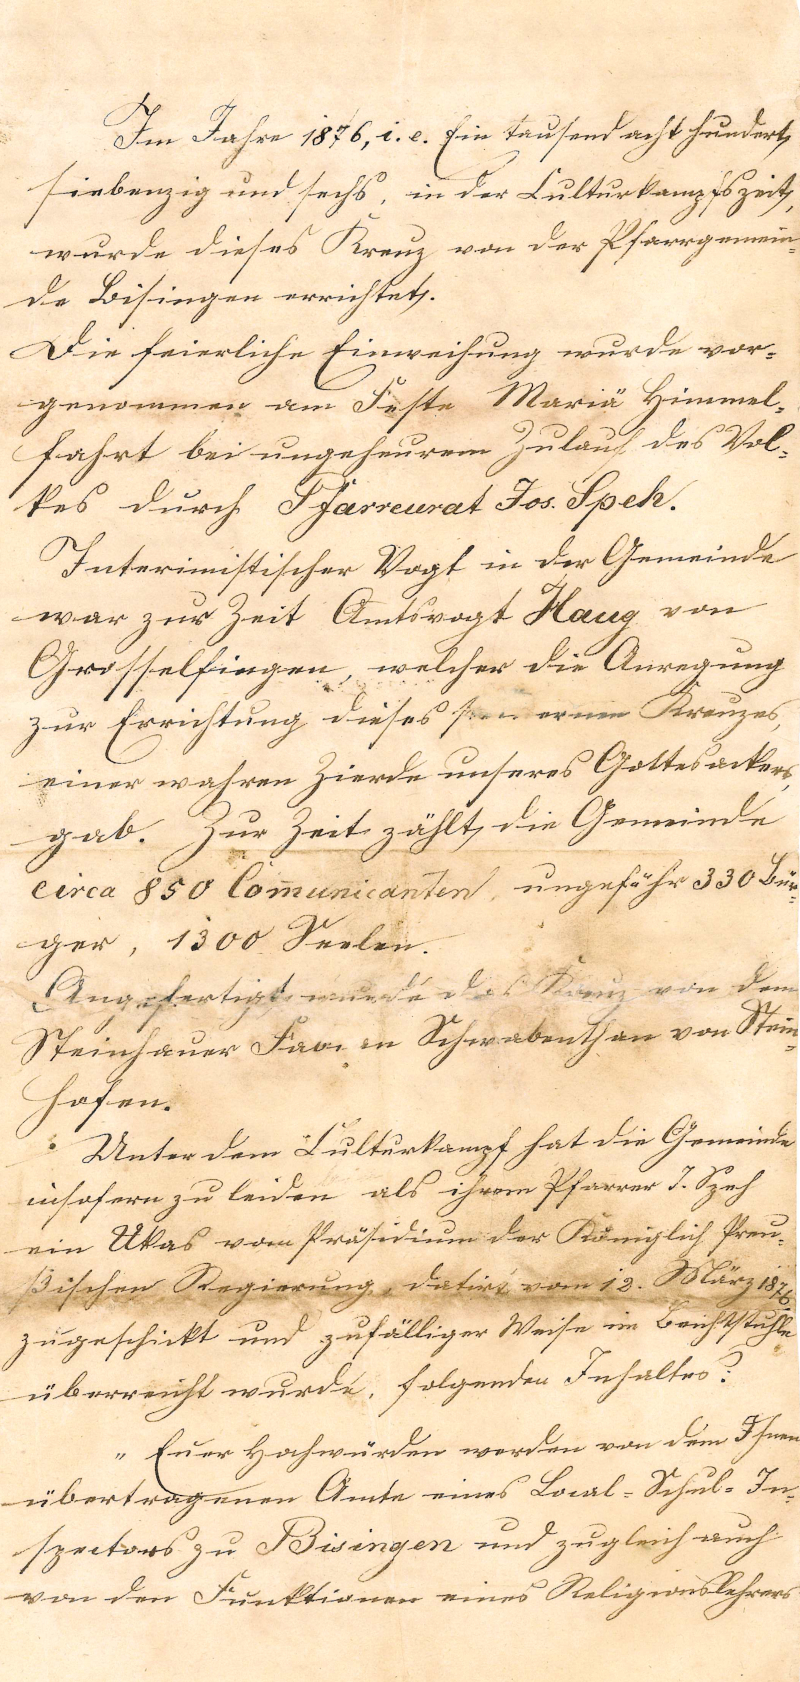 Im Jahre 1876, i. e. Ein tausend acht hundert
siebenzig und sechs, in der Culturkampfszeit,
wurde dieses Kreuz von der Pfarrgemein-
de Bisingen errichtet.
Die feierliche Einweihung wurde vor-
genommen am Feste Mariä Himmel-
fahrt bei ungeheurem Zulauf des Vol-
kes durch Pfarrcurat Jos. Speh.
Interimistischer Vogt in der Gemeinde
war zur Zeit Amtsvogt Haug von
Grosselfingen, welcher die Anregung
zur Errichtung dieses Kreuzes,
einer wahren Zierde unseres Gottesackers,
gab. Zur Zeit zählt die Gemeinde
circa 850 Com̅unicanten, ungefähr 330 Bür-
ger, 1300 Seelen.
Angefertigt wurde das Kreuz von dem
Steinhauer Schwabenthan von Stein-
hofen.
Unter dem Culturkampf hat die Gemeinde
insofern zu leiden als ihrem Pfarrer J. Speh
ein Ukas vom Präsidium der Königlich Preu-
ßischen Regierung, datirt vom 12. März 1876,
zugeschickt und zufälliger Weise im Beichtstuhle
überreicht wurde, folgenden Inhaltes:
„ Euer Hochwürden werden von dem Ihnen
übertragenen Amte eines Local-Schul-In-
spectors zu Bisingen und zugleich auch
von den Funktionen eines Religionslehrers